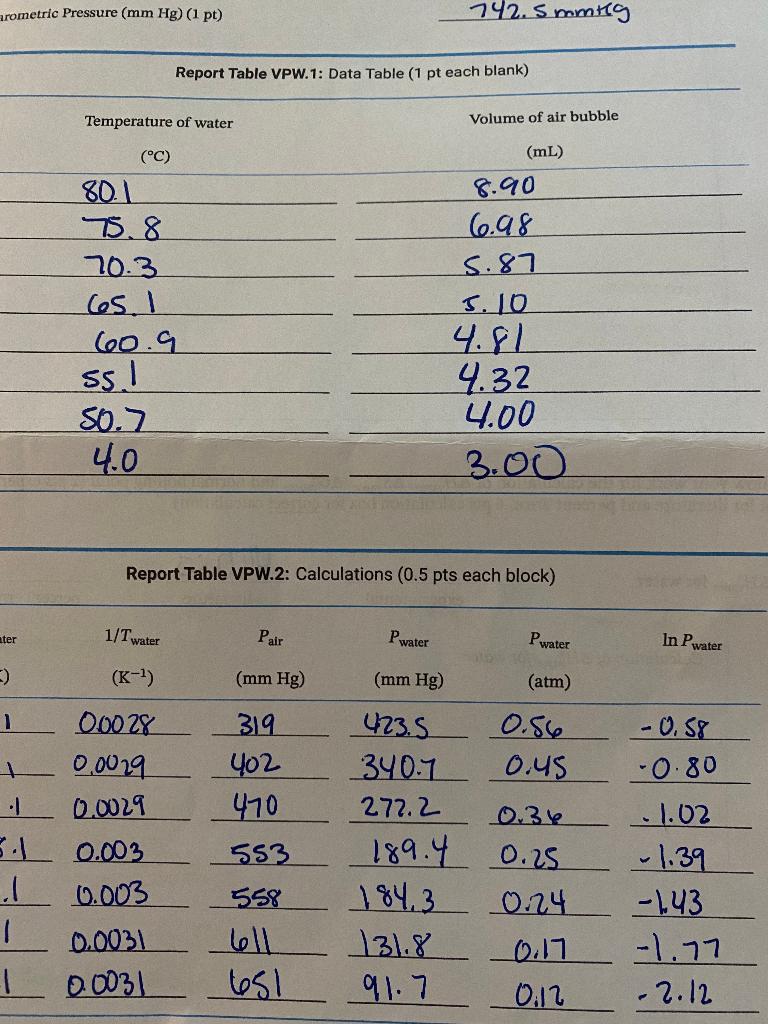 arometric Pressure (mm Hg) (1 pt) 742.5 mmHg
Report Table VPW.1: Data Table (1 pt each blank)
Temperature of water Volume of air bubble
(°C) (mL)
80.1 8.90
75.8 6.98
70.3 5.87
65.1 5.10
60.9 4.81
55.1 4.32
50.7 4.00
4.0 3.00
Report Table VPW.2: Calculations (0.5 pts each block)
ater 1/Twater Pair Pwater Pwater ln Pwater
) (K⁻¹) (mm Hg) (mm Hg) (atm)
1 0.0028 319 423.5 0.56 -0.58
1 0.0029 402 340.7 0.45 -0.80
.1 0.0029 470 272.2 0.36 -1.02
.1 0.003 553 189.4 0.25 -1.39
.1 0.003 558 184.3 0.24 -1.43
1 0.0031 611 131.8 0.17 -1.77
1 0.0031 651 91.7 0.12 -2.12